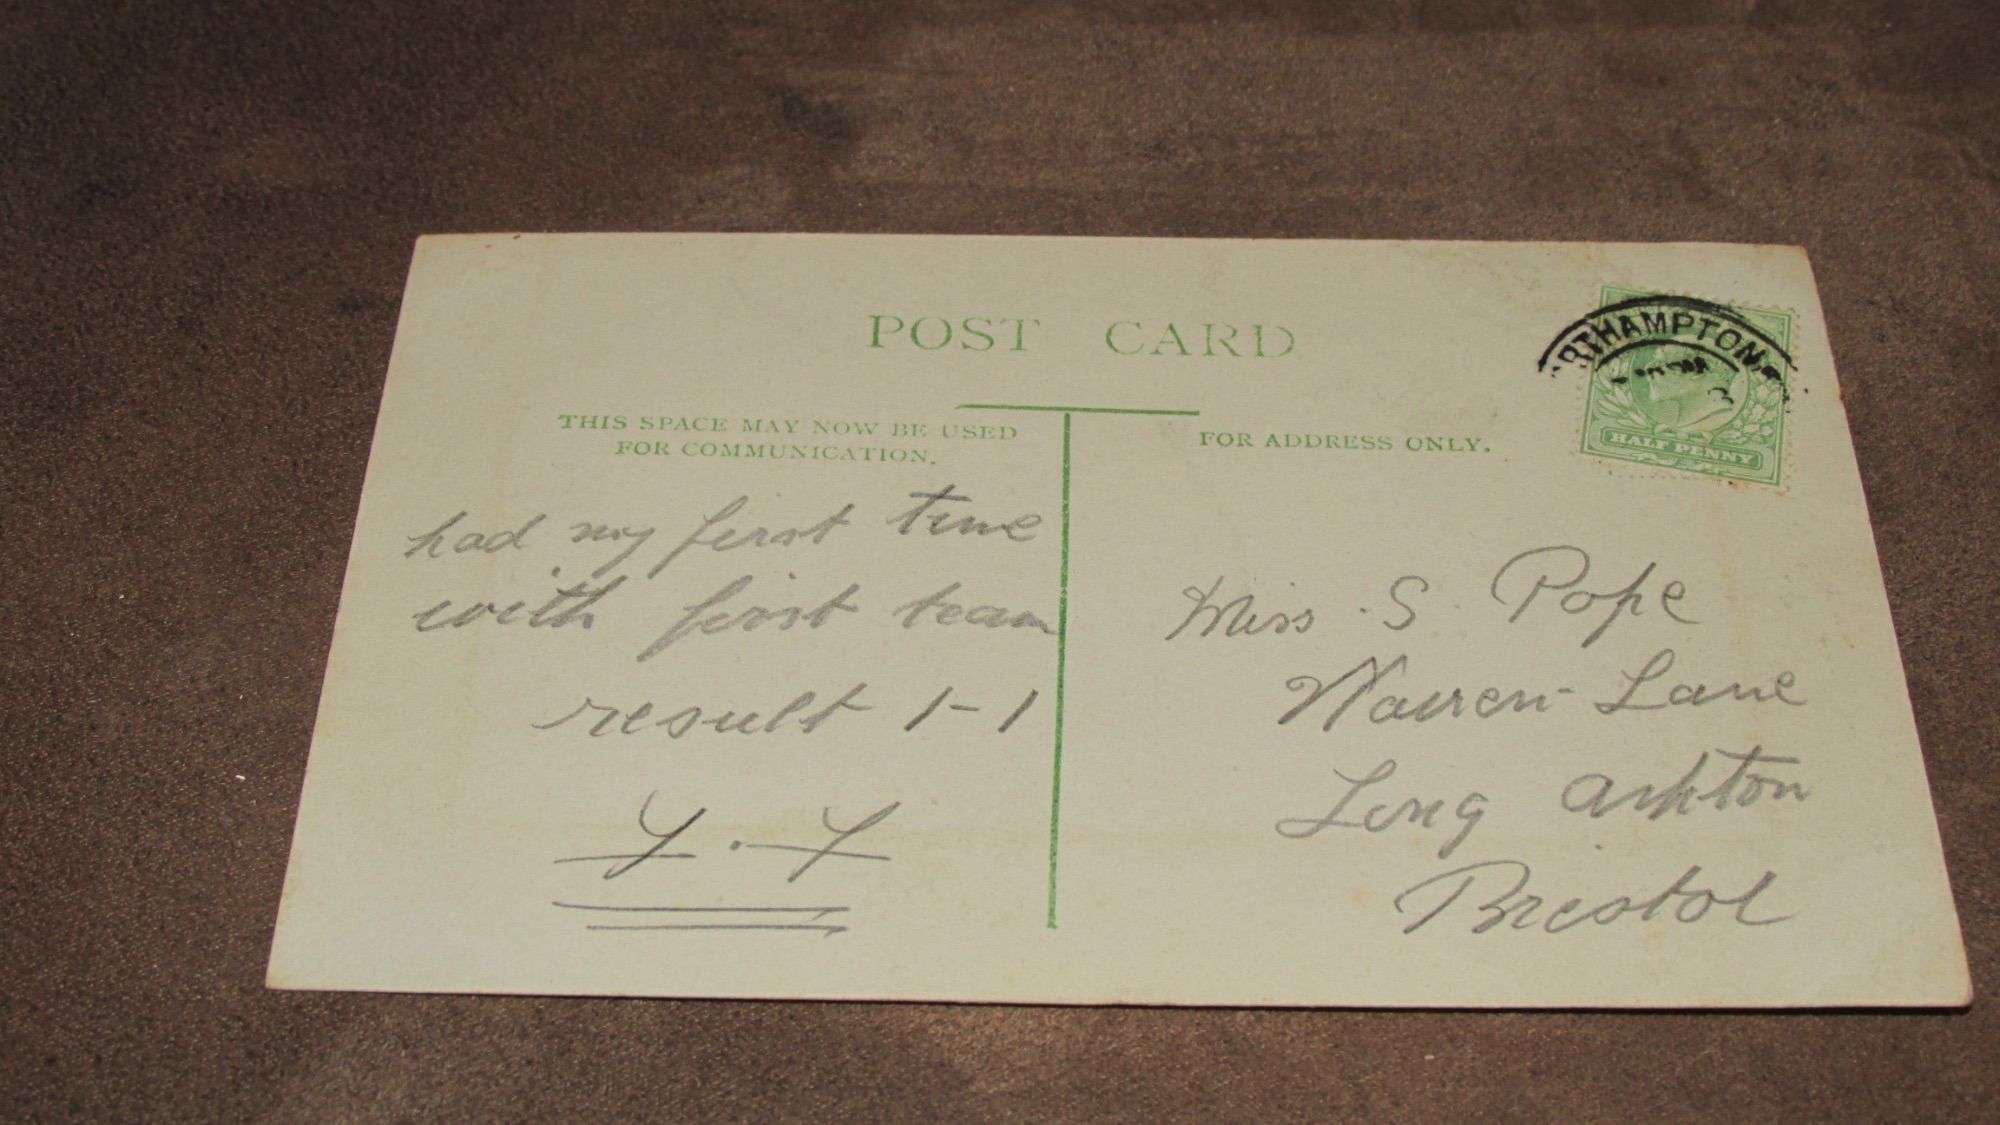 POST CARD
THIS SPACE MAY NOW BE USED
FOR COMMUNICATION.
had my first time
with first team
result 1-1
FOR ADDRESS ONLY.
RTHAMPTON
HALF PENNY
Miss . S . Pope
Warren Lane
Long Ashton
Bristol